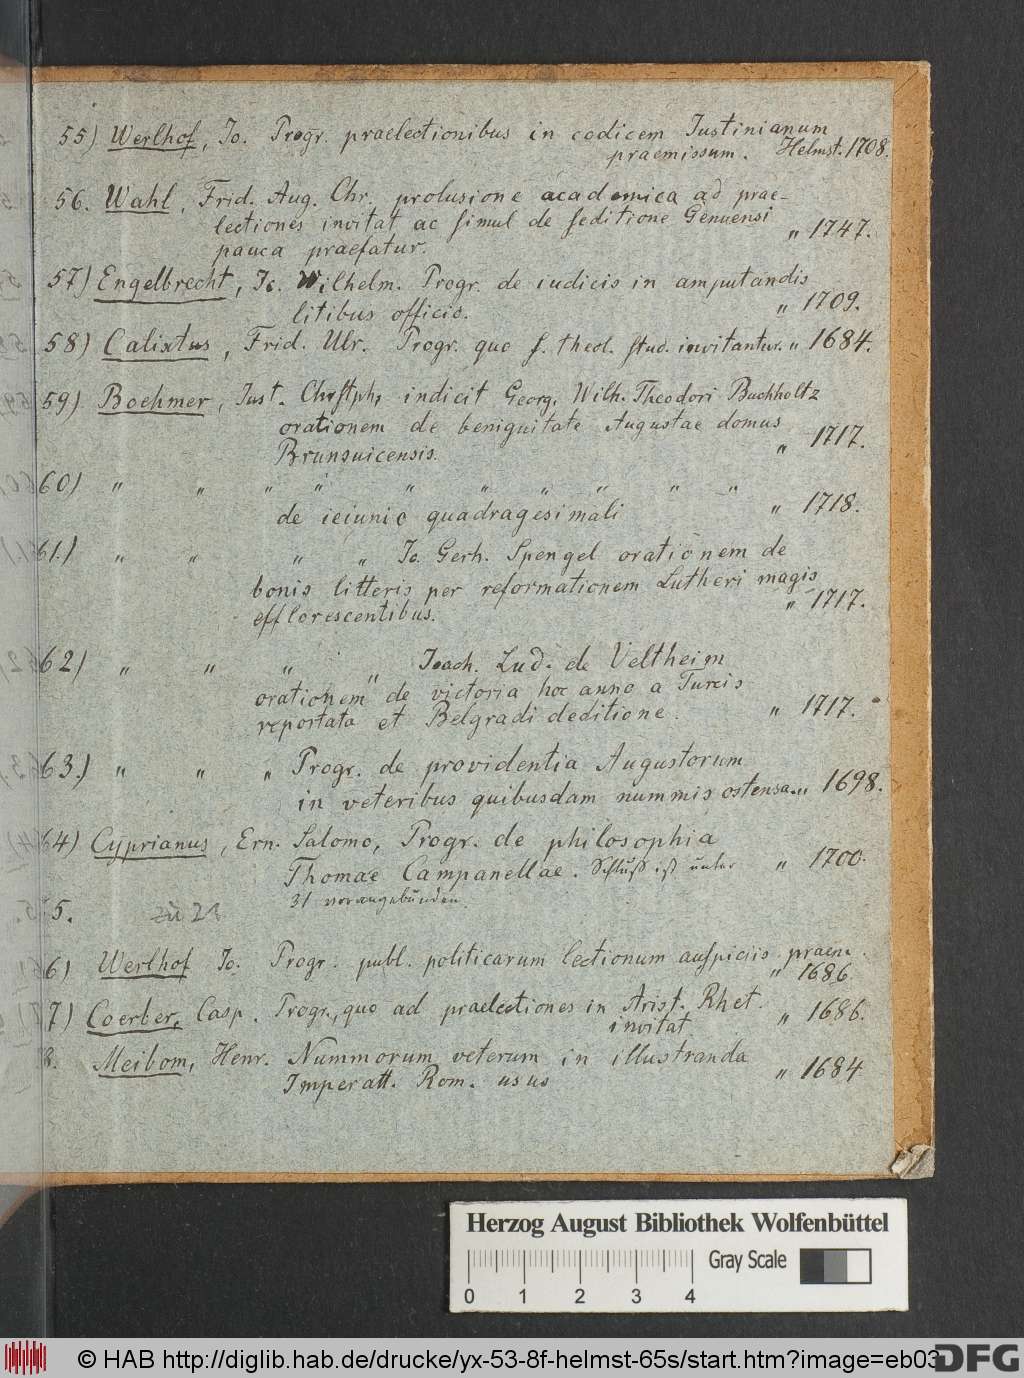 55) Werlhof, Io. Progr. praelectionibus in codicem Iustinianum
praemissum. Helmst. 1708.
56. Wahl, Frid. Aug. Chr. prolusione academica ad prae-
lectiones invitat ac simul de seditione Genuensi
pauca praefatur. " 1747.
57) Engelbrecht, Io. Wilhelm. Progr. de iudicis in amputandis
litibus officio. " 1709.
58) Calixtus, Frid. Ulr. Progr. quo s. theol. stud. invitantur. " 1684.
59) Boehmer, Iust. Chrstph, indicit Georg. Wilh. Theodori Buchholtz
orationem de benignitate Augustae domus
Brunsuicensis. " 1717.
60) " " " " " " " " " "
de ieiunio quadragesimali " 1718.
61.) " " " " Io. Gerh. Spengel orationem de
bonis litteris per reformationem Lutheri magis
efflorescentibus. " 1717.
62) " " " " Ioach. Lud. de Veltheim
orationem de victoria hoc anno a Turcis
reportata et Belgradi deditione. " 1717.
63.) " " " Progr. de providentia Augustorum
in veteribus quibusdam nummis ostensa. " 1698.
64) Cyprianus, Ern. Salomo, Progr. de philosophia
Thomae Campanellae. Schluß ist unter " 1700.
31 vorangebunden.
5. zu 23
6) Werlhof Io. Progr. publ. politicarum lectionum auspiciis praem.
" 1686.
7) Coerber, Casp. Progr., quo ad praelectiones in Arist. Rhet.
invitat " 1686.
8. Meibom, Henr. Nummorum veterum in illustranda
Imperatt. Rom. usus " 1684
Herzog August Bibliothek Wolfenbüttel
Gray Scale
0 1 2 3 4
© HAB http://diglib.hab.de/drucke/yx-53-8f-helmst-65s/start.htm?image=eb03
DFG